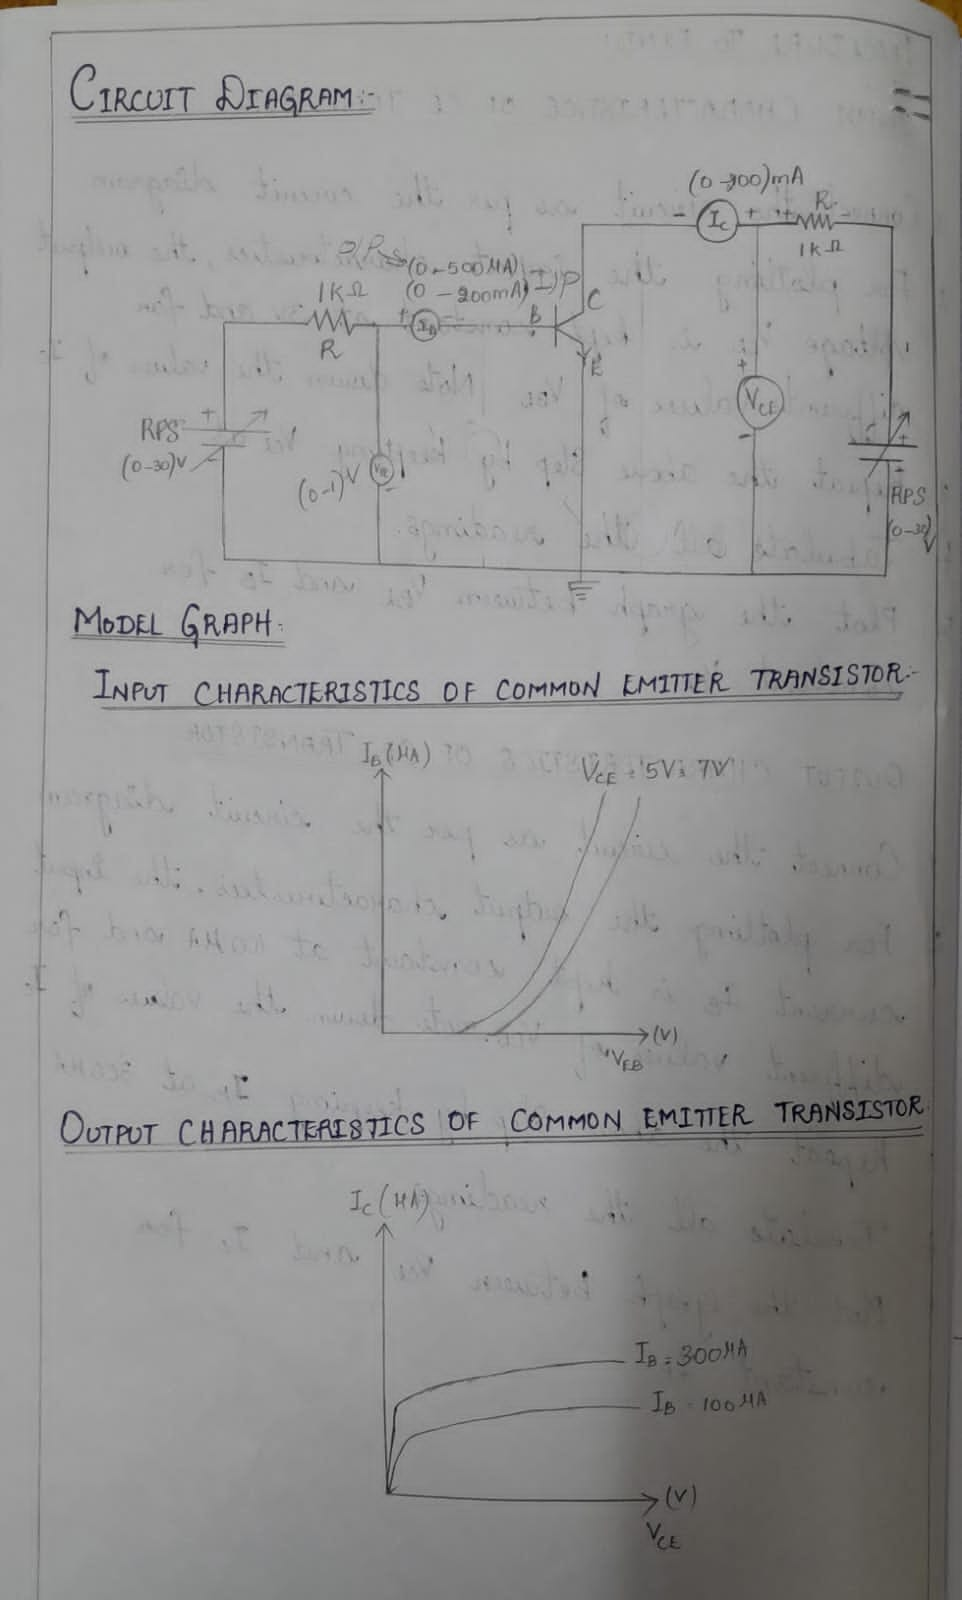 CIRCUIT DIAGRAM:-
(0-200)mA
- IC + + R -
1kΩ
O/P (0-500μA)
(0-200mA) I/P
1kΩ
R
+ IB
B
C
E
+
VCE
-
RPS
+
(0-30)V
(0-1)V
-
+
RPS
(0-30)V
MODEL GRAPH:
INPUT CHARACTERISTICS OF COMMON EMITTER TRANSISTOR:-
IB (μA)
VCE = 5V 7V
(V)
VEB
OUTPUT CHARACTERISTICS OF COMMON EMITTER TRANSISTOR
IC (μA)
IB = 300μA
IB = 100μA
(V)
VCE